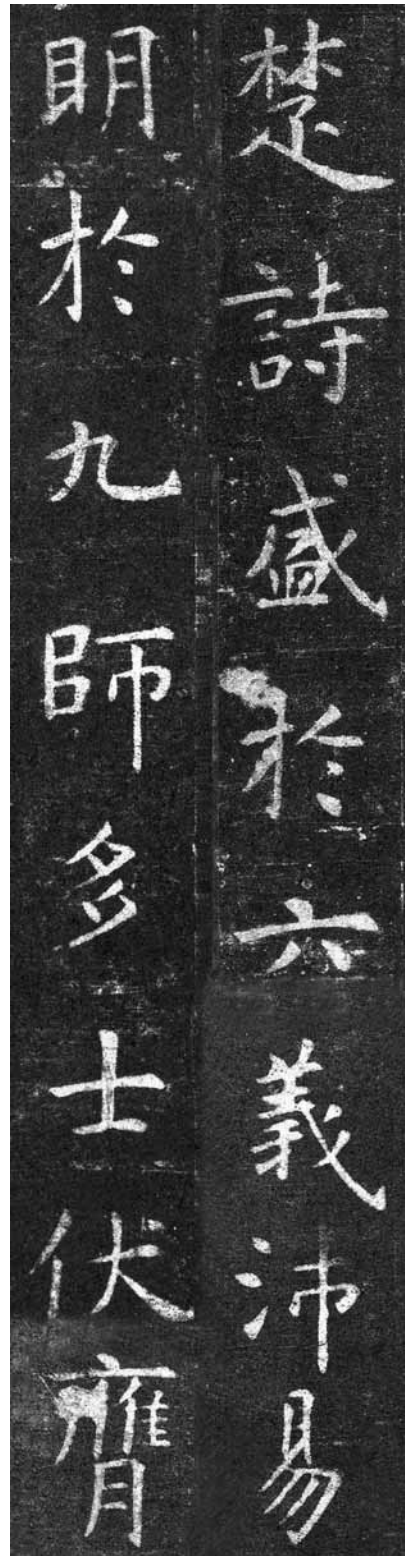 楚詩盛於六義沛易
明於九師多士伏膺